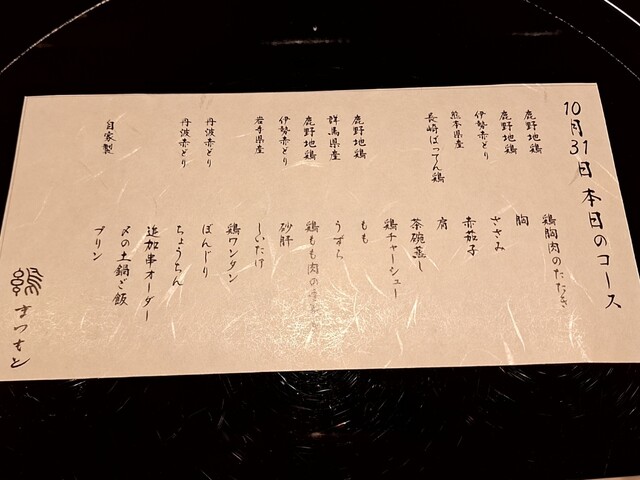 10月31日 本日のコース
鹿野地鶏 鶏胸肉のたたき
鹿野地鶏 胸
伊勢赤どり ささみ
熊本県産 赤茄子
長崎ばってん鶏 肩
茶碗蒸し
鶏チャーシュー
鹿野地鶏 もも
群馬県産 うずら
鹿野地鶏 鶏もも肉の
伊勢赤どり 砂肝
岩手県産 しいたけ
鶏ワンタン
丹波赤どり ぼんじり
丹波赤どり ちょうちん
追加串オーダー
〆の土鍋ご飯
自家製 プリン
まつもと